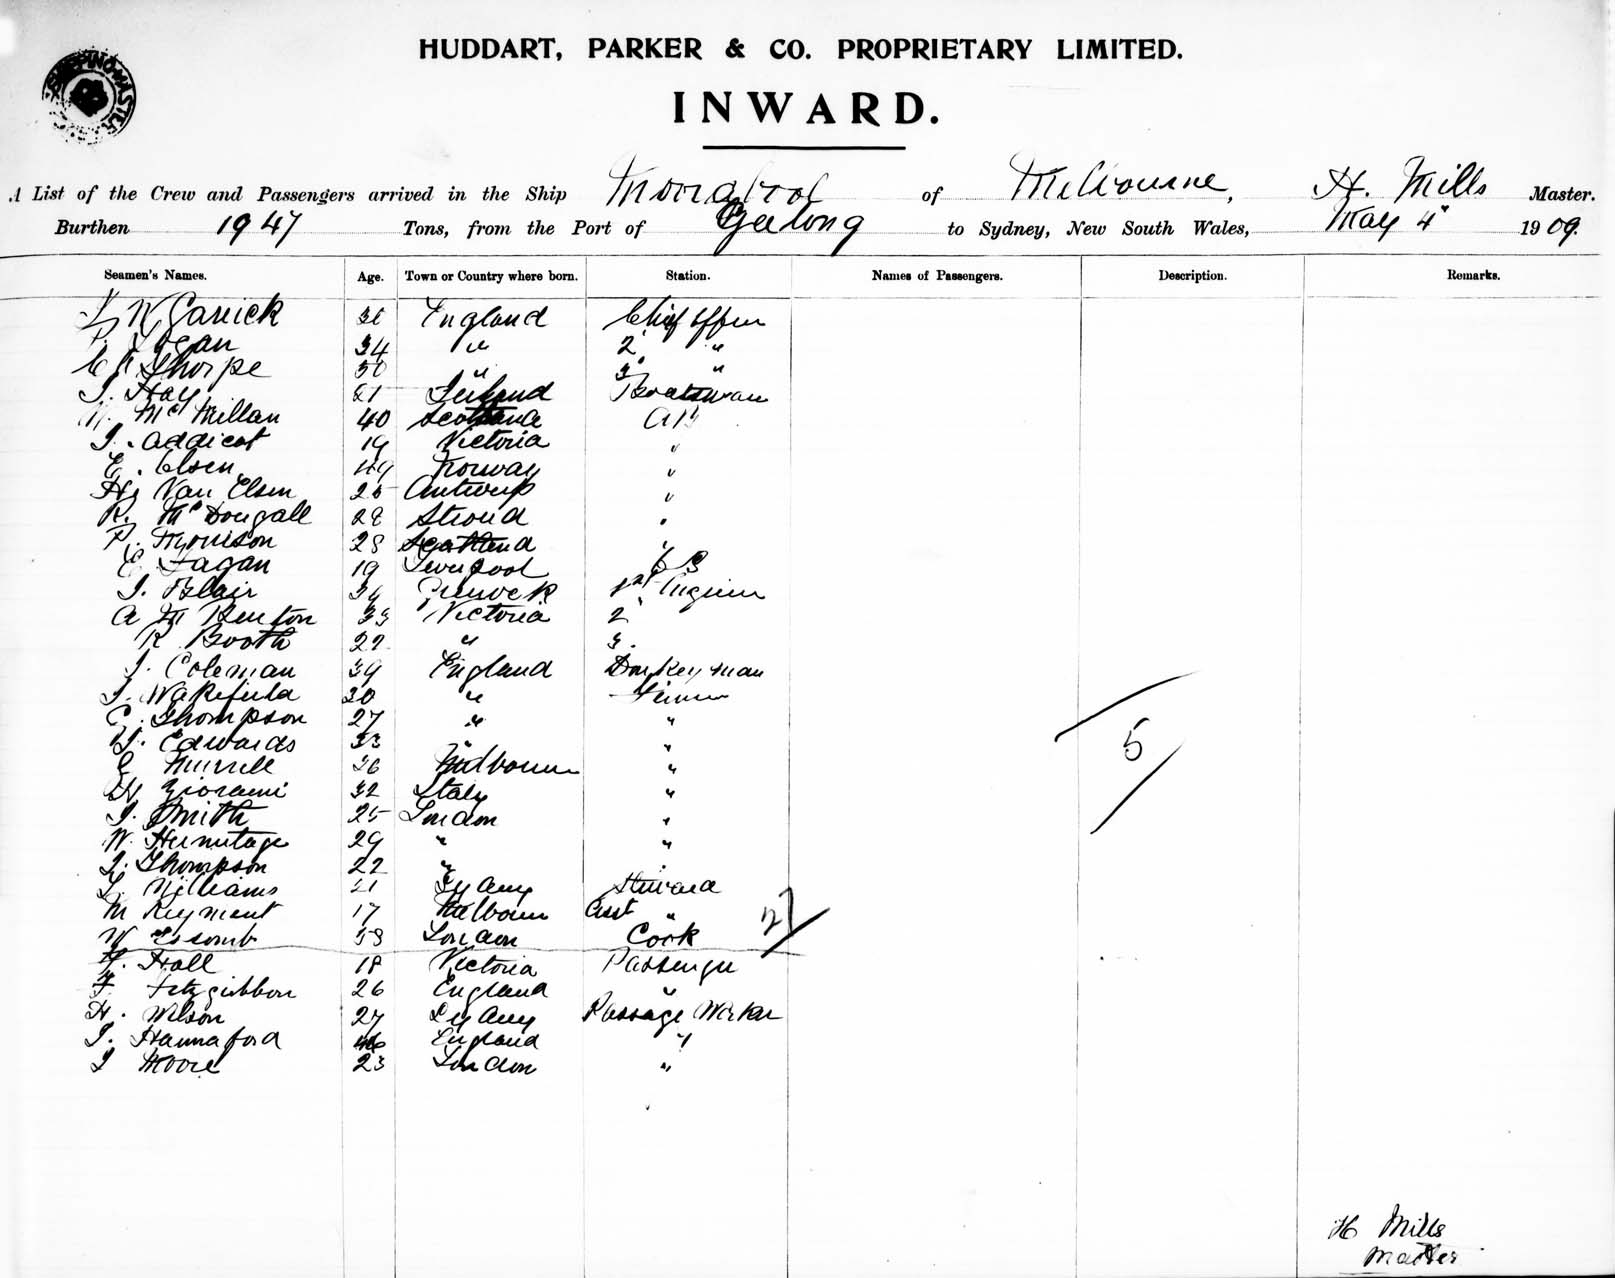 SHIPPING MASTER
HUDDART, PARKER & CO. PROPRIETARY LIMITED.
INWARD.
A List of the Crew and Passengers arrived in the Ship Moorabool of Melbourne, H. Mills Master.
Burthen 1947 Tons, from the Port of Geelong to Sydney, New South Wales, May 4" 1909.
Seamen's Names. Age. Town or Country where born. Station. Names of Passengers. Description. Remarks.
W Garrick England Chief Officer
Logan 34 " 2 "
Thorpe 30 " 3 "
Hay 21 Ireland Boatswain
McMillan 40 Scotland AB
J. Addicot 19 Victoria "
E. Olsen 49 Norway "
H. Van Elsen 25 Antwerp "
R. McDougall 28 Stroud "
P. Morrison 28 Scotland "
E. Fagan 19 Liverpool
J. Blair 34 1st Engineer
A M Benton 33 Victoria 2
R Booth 22 " 3.
J. Coleman 39 England Donkeyman
J. Wakefield 30 " Fireman
C. Thompson 27 " "
Edwards 33 " "
Murrell 26 Melbourne "
32 Italy "
J. Smith 25 London "
W. Hermitage 29 " "
J. Thompson 22 " "
Williams 21 Sydney Steward
M Reyment 17 Melbourne Asst "
W Escomb 53 London Cook 27
Hall 18 Victoria Passenger
F. Fitzgibbon 26 England "
H. Wilson 27 Sydney Passage Worker
J. Hannaford 46 England "
J Moore 23 London "
5
H Mills
Master